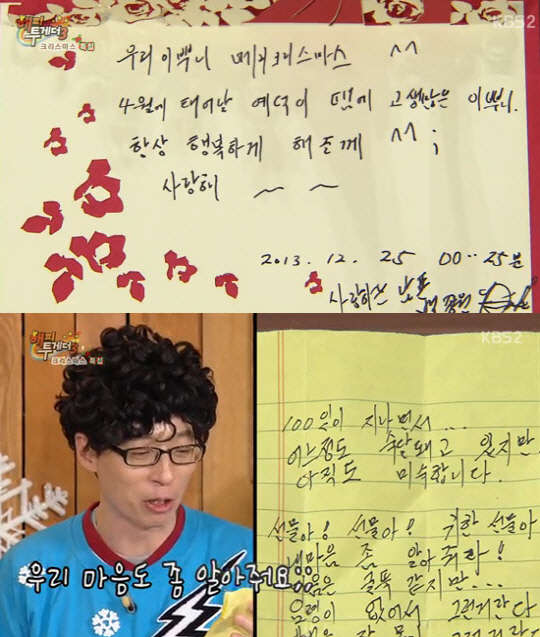 해피
투게더3
크리스마스 특집
KBS2
우리 이쁘니 메리크리스마스 ^^
4월에 태어날 예덕이 땜에 고생많은 이쁘니.
항상 행복하게 해 줄께 ^^;
사랑해 ~ ~
2013. 12. 25 00:25분
사랑하는
해피
투게더3
크리스마스 특집
우리 마음도 좀 알아줘요!!
KBS2
100일이 지나면서...
어느정도 숙달돼고 있지만
아직도 미숙합니다.
선물아! 선물아! 귀한 선물아
내마음 좀 알아줘라!
마음은 굴뚝 같지만...
요령이 없어서 그런거란다